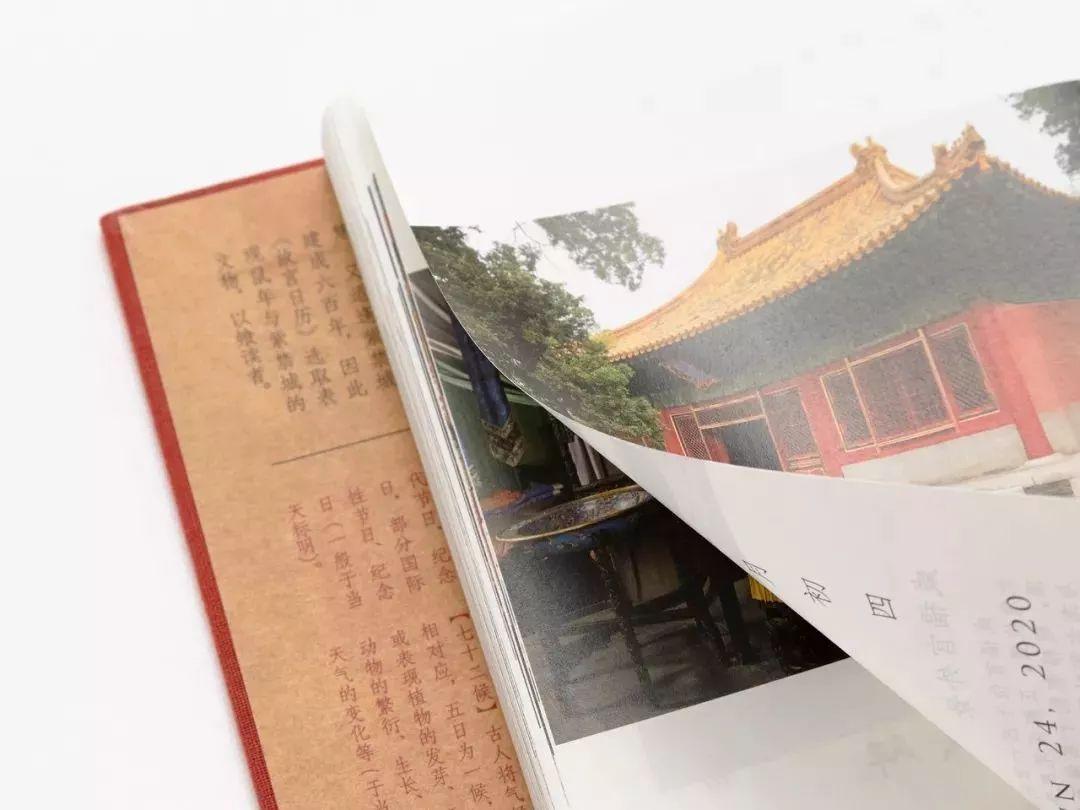 又适逢 城
建成六百年，因此
《故宫日历》选取表
现鼠年与紫禁城的
文物，以飨读者。
代节日、纪念
日，部分国际
性节日、纪念
日（一般于当
天标明）。
【七十二候】古人将气
相对应，五日为一候，
或表现植物的发芽、
动物的繁衍、生长、
天气的变化等（于当
月初四
N 24, 2020